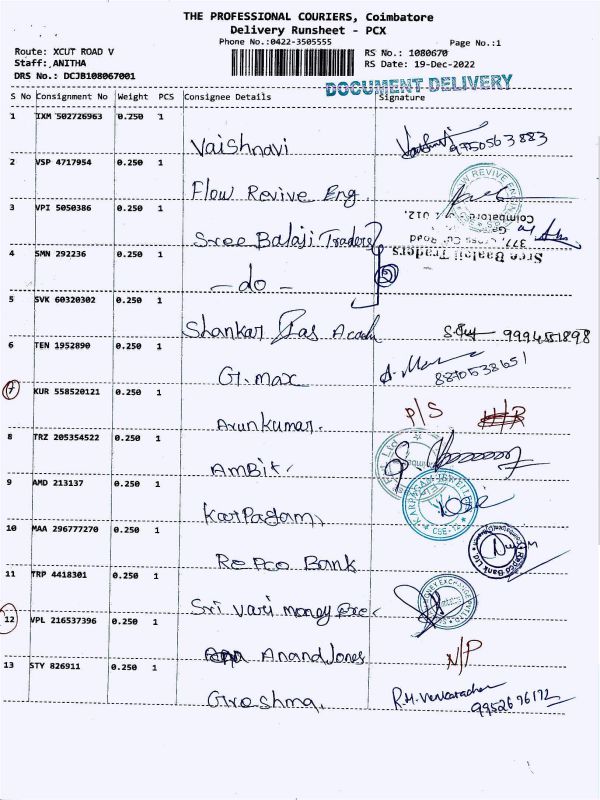 THE PROFESSIONAL COURIERS, Coimbatore
Delivery Runsheet - PCX
Phone No.:0422-3505555
Page No.:1
Route: XCUT ROAD V
RS No.: 1080670
Staff: ANITHA
RS Date: 19-Dec-2022
DRS No.: DCJB108067001
DOCUMENT DELIVERY
S No Consignment No Weight PCS Consignee Details Signature
1 IXM 502726963 0.250 1
Vaishnavi 9750563883
2 VSP 4717954 0.250 1
Flow Revive Eng
3 VPI 5050386 0.250 1
Sree Balaji Traders
Sree Baalaji Traders
377, Cross Cut Road
Coimbatore
4 SMN 292236 0.250 1
- do - 2
5 SVK 60320302 0.250 1
Shankar Ias 9994581898
6 TEN 1952890 0.250 1
G.max 8870538651
7 KUR 558520121 0.250 1
Arunkumar. P/S
8 TRZ 205354522 0.250 1
AmBit.
9 AMD 213137 0.250 1
Karpagam
CSE-12
10 MAA 296777270 0.250 1
Repco Bank
Repco Bank Ltd
11 TRP 4418301 0.250 1
Sri vari money
12 VPL 216537396 0.250 1
Anand Jones N/P
13 STY 826911 0.250 1
Greshma. 9952696172